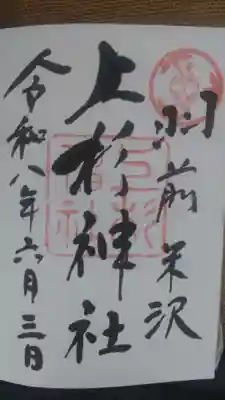 羽前米沢
上杉神社
令和八年六月三日